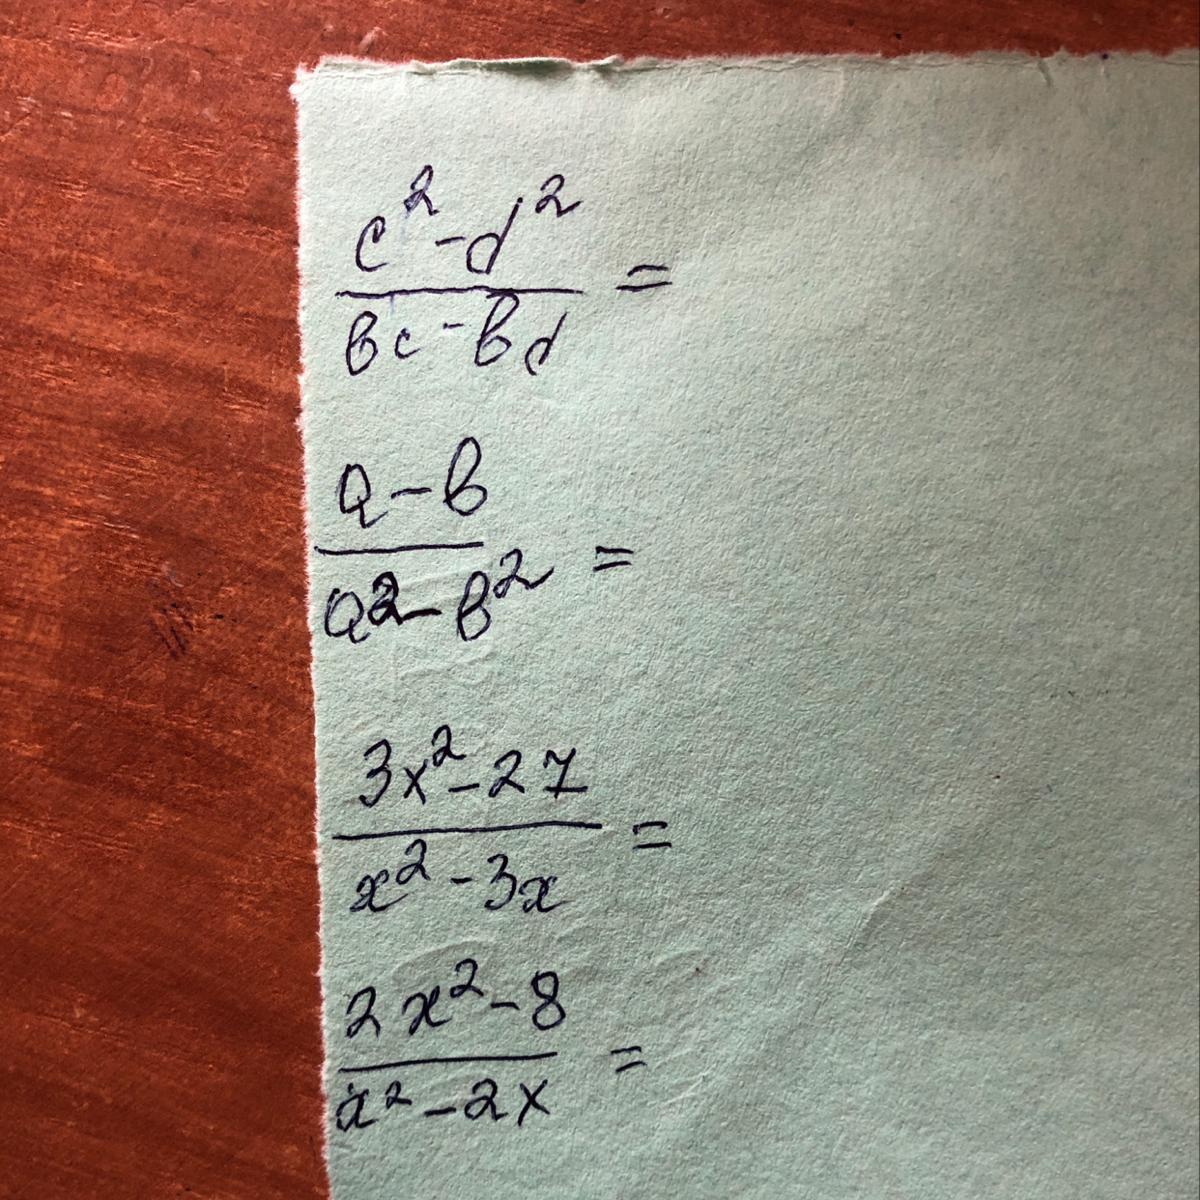 c² - d²
bc - bd =
a - b
a² - b² =
3x² - 27
x² - 3x =
2x² - 8
x² - 2x =